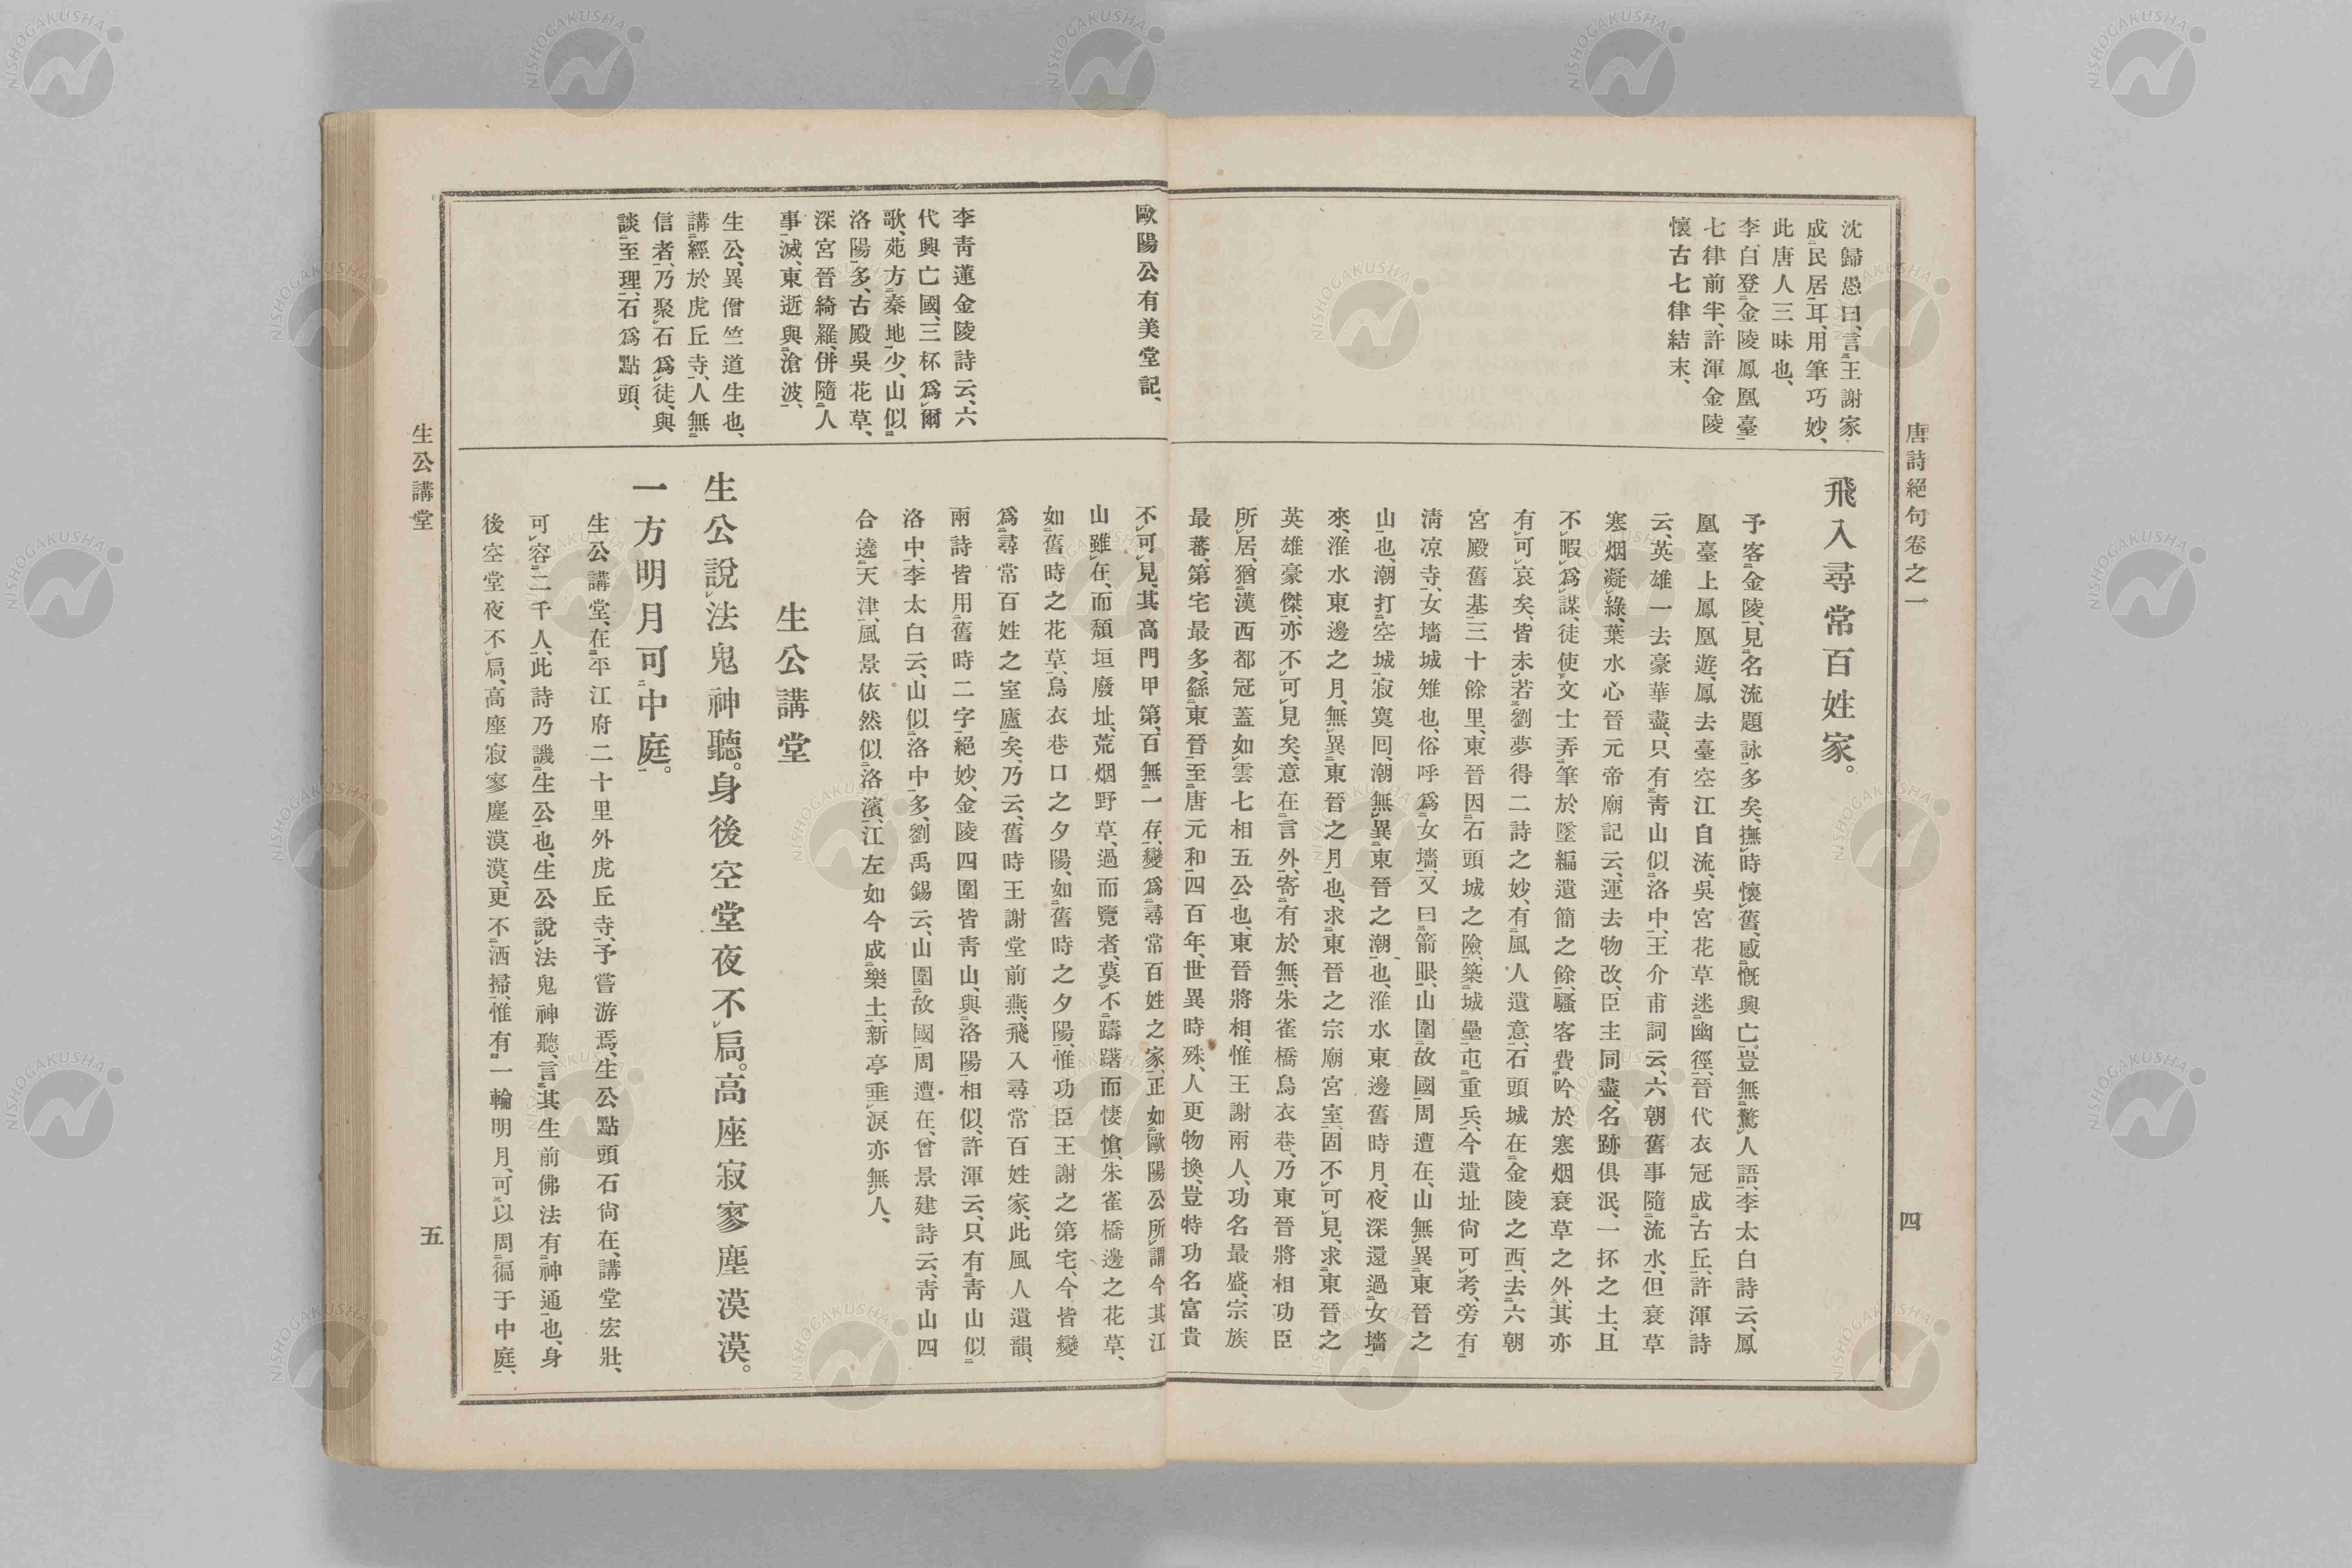 唐詩絕句卷之一
四
沈歸愚曰、言王謝家
成民居耳、用筆巧妙、
此唐人三昧也、
李白登金陵鳳凰臺
七律前半、許渾金陵
懷古七律結末、
飛入尋常百姓家。
予客金陵、見名流題詠多矣、撫時懷舊、感慨興亡。豈無驚人語、李太白詩云、鳳
凰臺上鳳凰遊、鳳去臺空江自流、吳宮花草迷幽徑、晉代衣冠成古丘、許渾詩
云、英雄一去豪華盡、只有靑山似洛中、王介甫詞云、六朝舊事隨流水、但衰草
寒烟凝綠、葉水心晉元帝廟記云、運去物改、臣主同盡、名跡俱泯、一抔之土、且
不暇爲謀、徒使文士弄筆於墜編遺簡之餘、騷客費吟於寒烟衰草之外、其亦
有可哀矣、皆未若劉夢得二詩之妙、有風人遺意、石頭城在金陵之西、去六朝
宮殿舊基三十餘里、東晉因石頭城之險、築城壘屯重兵、今遺址尙可考、旁有
淸凉寺、女墻城雉也、俗呼爲女墻、又曰箭眼、山圍故國周遭在、山無異東晉之
山也、潮打空城寂寞囘、潮無異東晉之潮也、淮水東邊舊時月、夜深還過女墻
來、淮水東邊之月、無異東晉之月也、求東晉之宗廟宮室、固不可見、求東晉之
英雄豪傑、亦不可見矣、意在言外、寄有於無、朱雀橋烏衣巷、乃東晉將相功臣
所居、猶漢西都冠蓋如雲七相五公也、東晉將相、惟王謝兩人、功名最盛、宗族
最蕃、第宅最多、繇東晉至唐元和四百年、世異時殊、人更物換、豈特功名富貴
歐陽公有美堂記、
李靑蓮金陵詩云、六
代興亡國、三杯爲爾
歌、苑方秦地少、山似
洛陽多、古殿吳花草、
深宮晉綺羅、併隨人
事滅、東逝與滄波、
生公、異僧竺道生也、
講經於虎丘寺、人無
信者、乃聚石爲徒、與
談至理、石爲點頭、
不可見、其高門甲第、百無一存、變爲尋常百姓之家、正如歐陽公所謂今其江
山雖在、而頽垣廢址、荒烟野草、過而覽者、莫不躊躇而悽愴、朱雀橋邊之花草、
如舊時之花草、烏衣巷口之夕陽、如舊時之夕陽、惟功臣王謝之第宅、今皆變
爲尋常百姓之室廬矣、乃云、舊時王謝堂前燕、飛入尋常百姓家、此風人遺韻、
兩詩皆用舊時二字、絕妙、金陵四圍皆靑山、與洛陽相似、許渾云、只有靑山似
洛中、李太白云、山似洛中多、劉禹錫云、山圍故國周遭在、曾景建詩云、靑山四
合遶天津、風景依然似洛濱、江左如今成樂土、新亭垂淚亦無人、
生公講堂
生公說法鬼神聽。身後空堂夜不扃。高座寂寥塵漠漠。
一方明月可中庭。
生公講堂、在平江府二十里外虎丘寺、予嘗游焉、生公點頭石尙在、講堂宏壯、
可容二千人、此詩乃譏生公也、生公說法鬼神聽、言其生前佛法有神通也、身
後空堂夜不扃、高座寂寥塵漠漠、更不洒掃、惟有一輪明月、可以周徧于中庭、
生公講堂
五